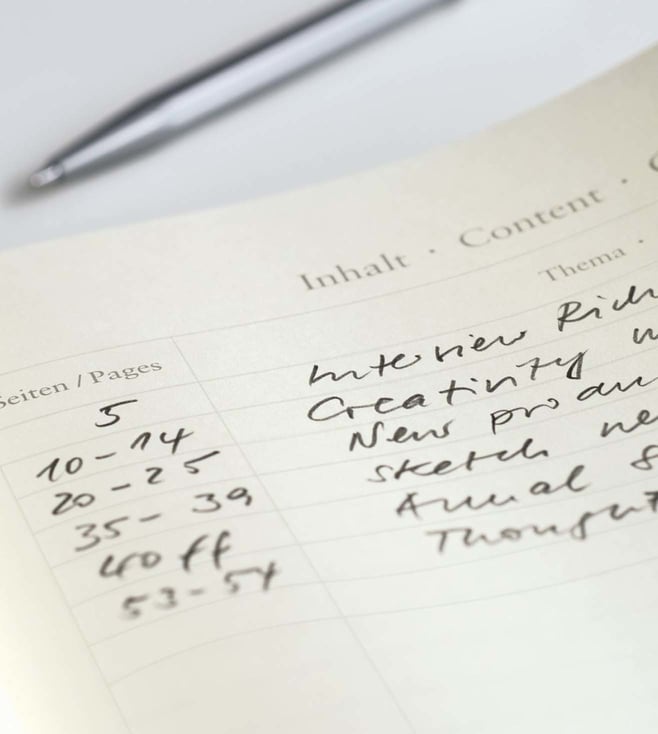 Inhalt · Content ·
Thema ·
Seiten / Pages
5 Interview
10 - 14 Creativity
20 - 25 New
35 - 39 sketch
40 ff Annual
53 - 54